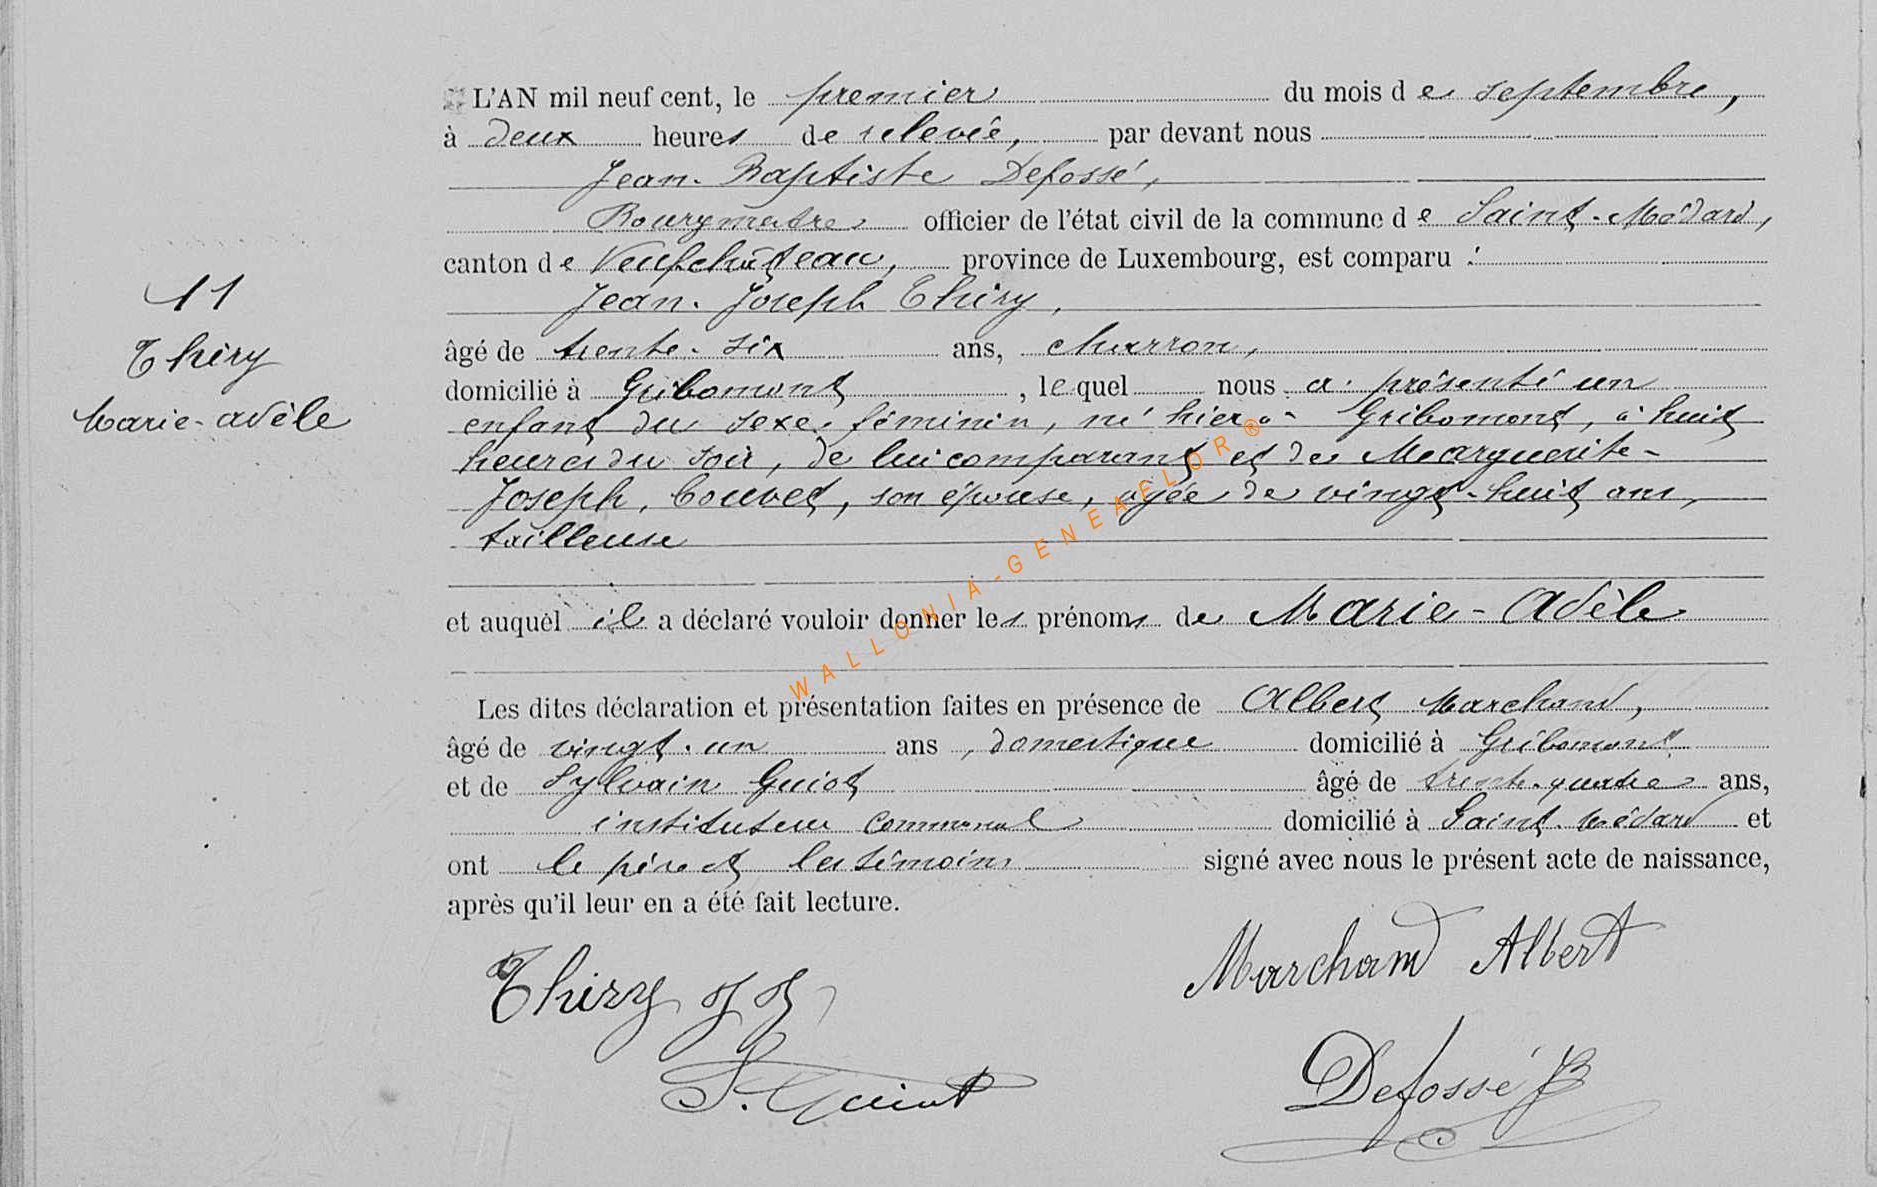 L'AN mil neuf cent, le premier du mois de septembre,
à deux heures de relevée, par devant nous
Jean-Baptiste Defossé,
Bourgmestre officier de l'état civil de la commune de Saint-Médard,
canton de Neufchâteau, province de Luxembourg, est comparu :
Jean-Joseph Thiry,
11
Thiry
Marie-Adèle
âgé de trente-six ans, charron,
domicilié à Gribomont, lequel nous a présenté un
enfant du sexe féminin, né hier à Gribomont, à huit
heures du soir, de lui comparant et de Marguerite-
Joseph, , son épouse, âgée de vingt-huit ans,
tailleuse
et auquel il a déclaré vouloir donner les prénoms de Marie-Adèle
Les dites déclaration et présentation faites en présence de Albert Marchand,
âgé de vingt-un ans, domestique domicilié à Gribomont
et de Sylvain Guiot âgé de trente-quatre ans,
instituteur communal domicilié à Saint-Médard et
ont le père et les témoins signé avec nous le présent acte de naissance,
après qu'il leur en a été fait lecture.
Marchand Albert
Thiry J J
S. Guiot
Defossé JB
WALLONIA-GENEAFLOR®